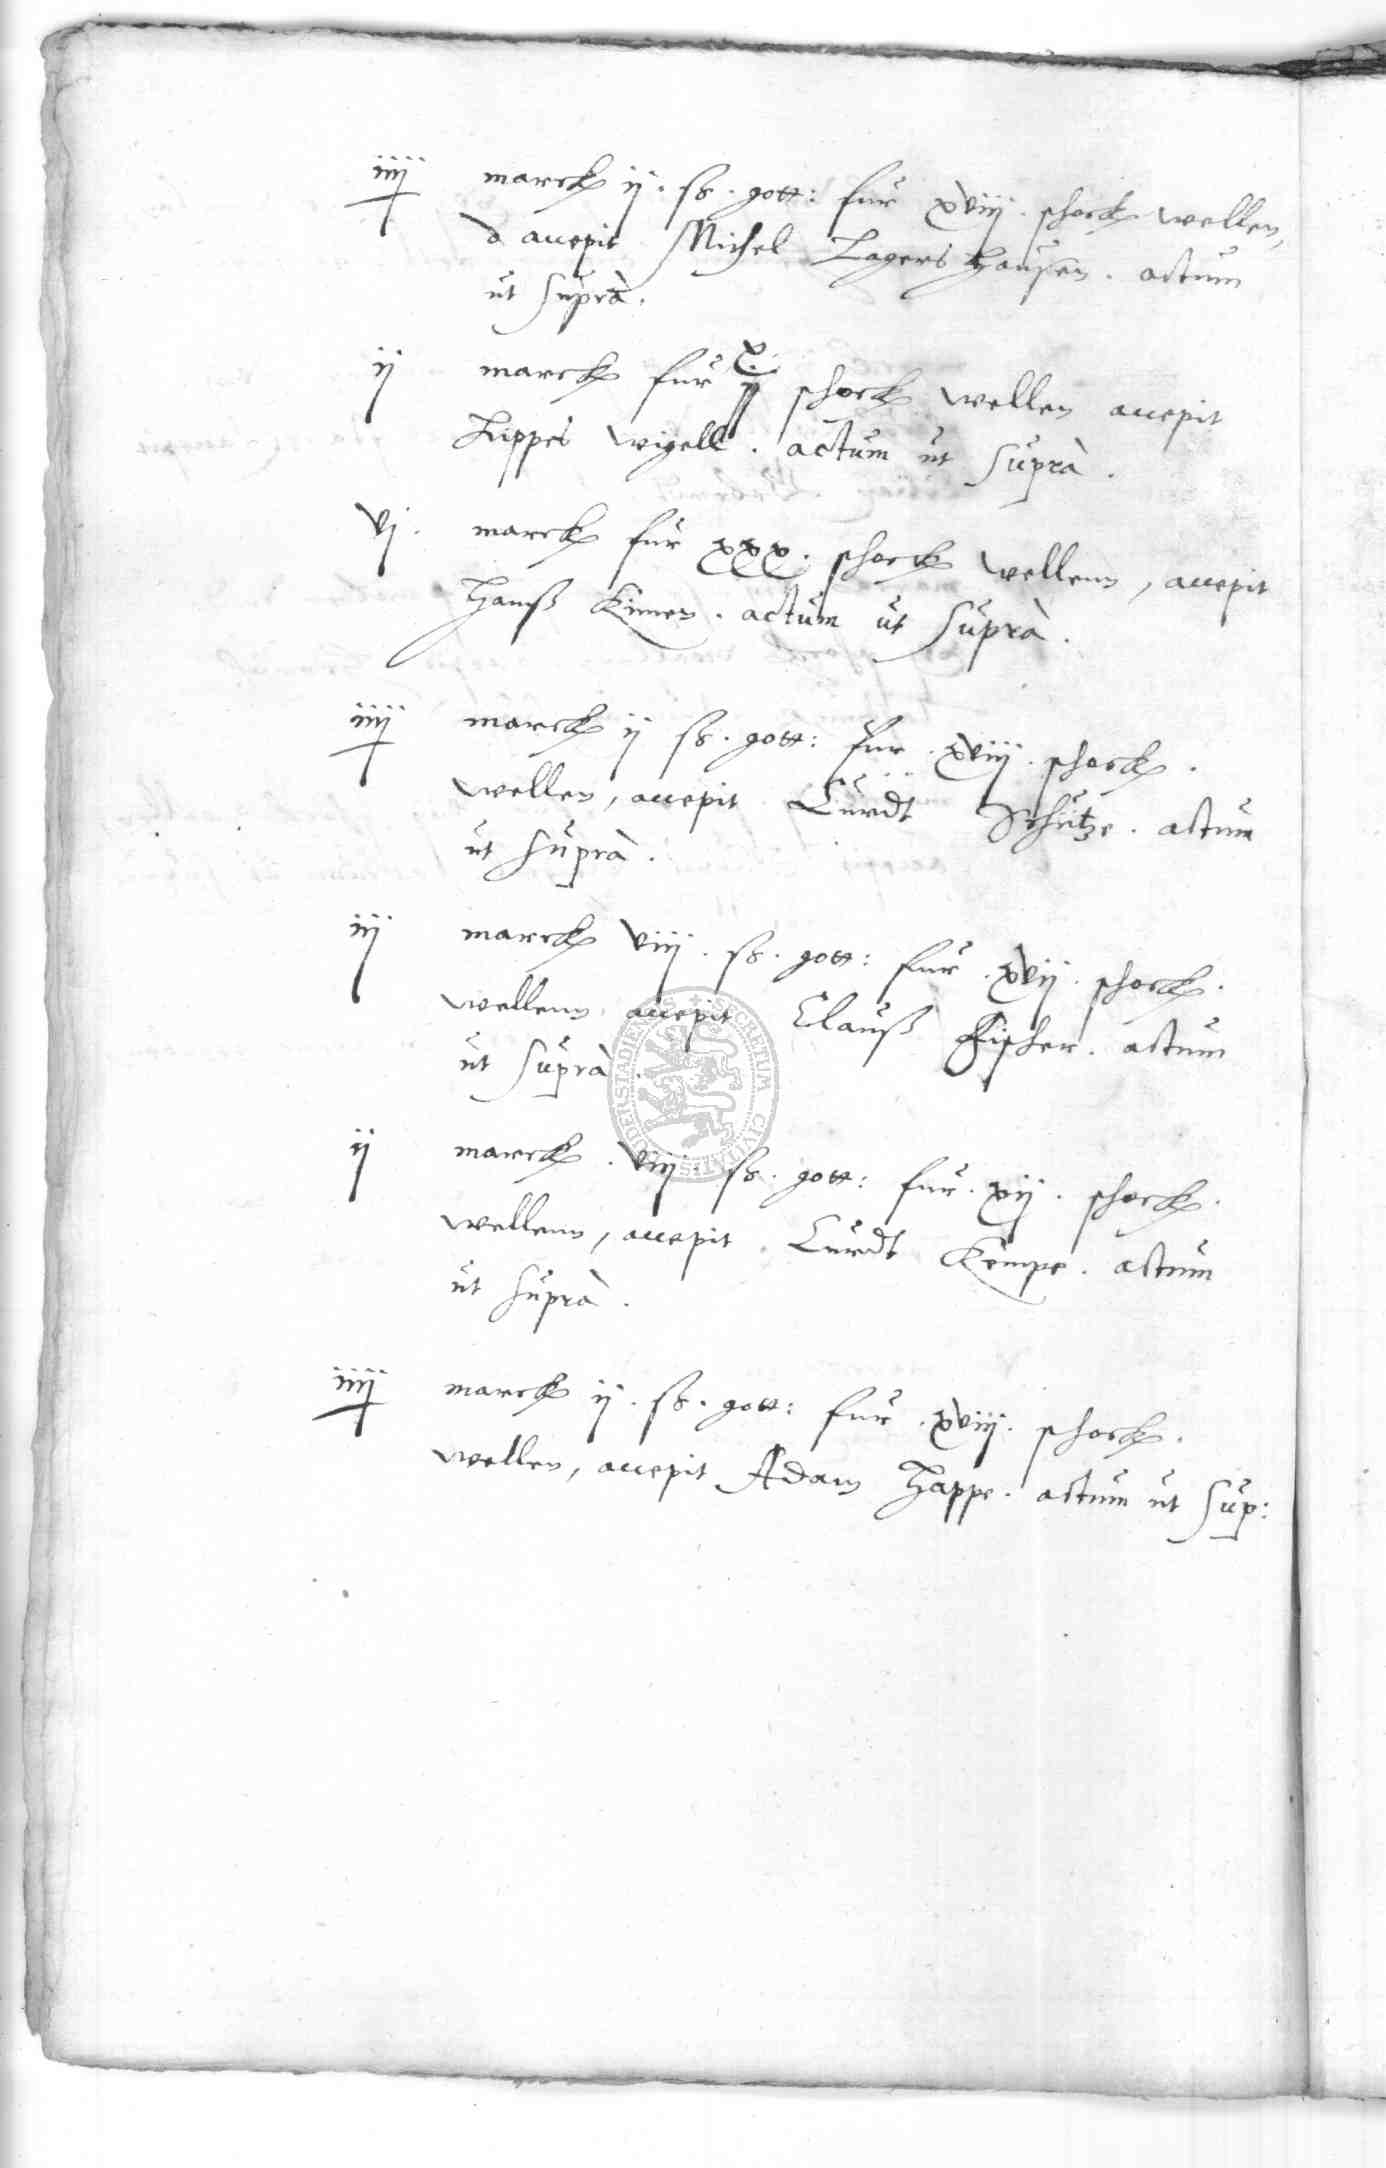 iiij marck ij. ß. gott: fur xviij. schock wellen,
d accepit Michel Hagers hausen. actum
ut supra.
ij marck fur x schock wellen accepit
Lippes wigell. actum ut supra.
vj. marck fur xxx. schock wellenn, accepit
Hanß Kimen. actum ut supra.
iiij marck ij ß. gott: fur. xviij. schock.
wellen, accepit Curdt Schutze. actum
ut supra.
iij marck viij. ß. gott: fur. xvij. schock.
wellenn accepit Clauß Fischer. actum
ut supra.
ij marck. viij. ß. gott: fur. xij. schock.
wellenn, accepit. Curdt Kempe. actum
ut supra.
iiij marck ij. ß. gott: fur. xviij. schock.
wellen, accepit Adam Happe. actum ut sup:
SECRETUM CIVITATIS DUDERSTADIENSIS